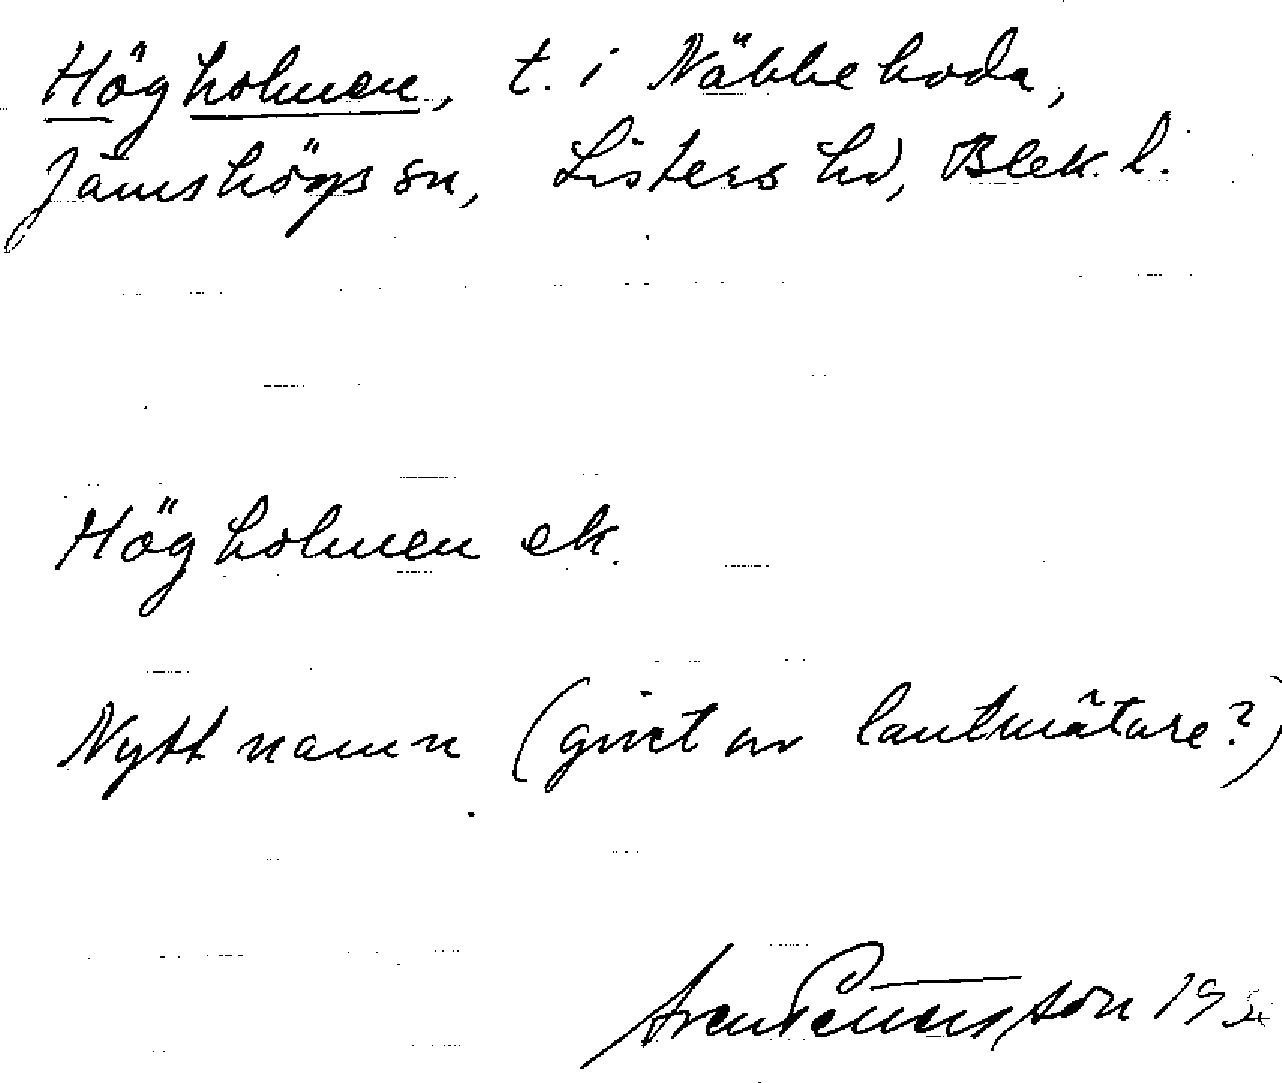 Högholmen, t. i Näbbeboda,
Jämshögs sn, Listers hd, Blek. l.
Högholmen ek.
Nytt namn (givet av lantmätare?)